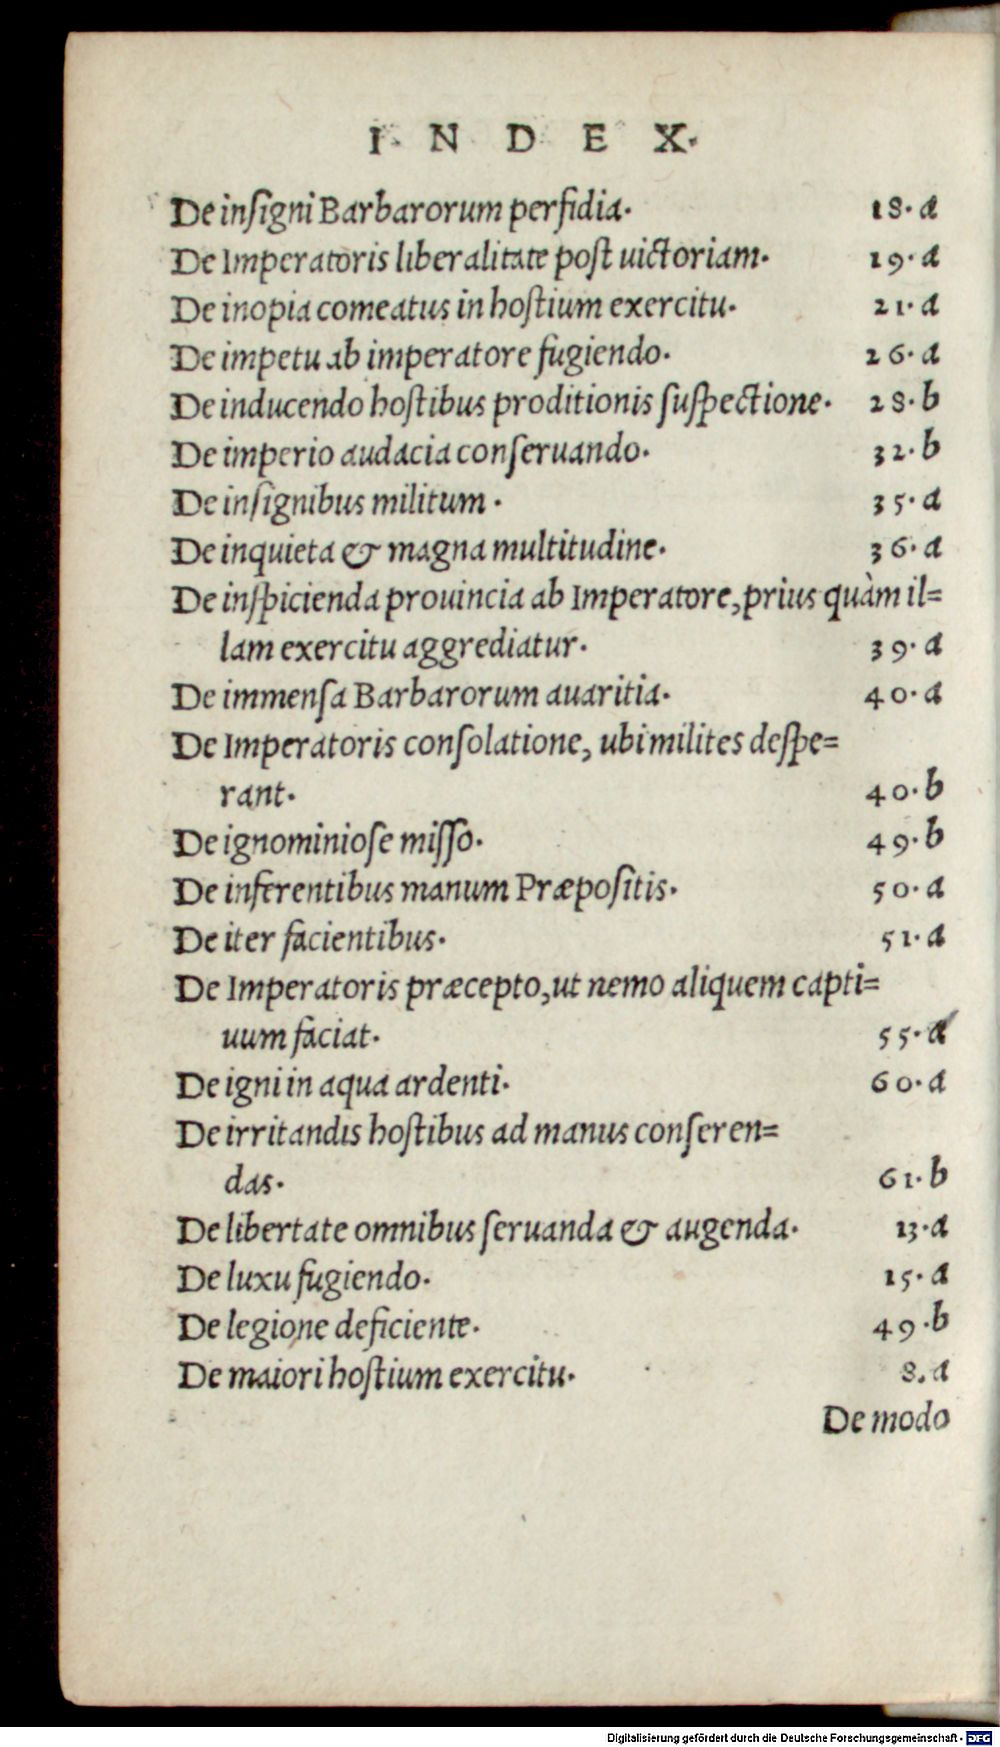 I N D E X.
De insigni Barbarorum perfidia. 18. a
De Imperatoris liberalitate post uictoriam. 19. a
De inopia comeatus in hostium exercitu. 21. a
De impetu ab imperatore fugiendo. 26. a
De inducendo hostibus proditionis suspectione. 28. b
De imperio audacia conseruando. 32. b
De insignibus militum. 35. a
De inquieta & magna multitudine. 36. a
De inspicienda prouincia ab Imperatore, prius quàm il=
lam exercitu aggrediatur. 39. a
De immensa Barbarorum auaritia. 40. a
De Imperatoris consolatione, ubi milites despe=
rant. 40. b
De ignominiose misso. 49. b
De inferentibus manum Præpositis. 50. a
De iter facientibus. 51. a
De Imperatoris præcepto, ut nemo aliquem capti=
uum faciat. 55. a
De igni in aqua ardenti. 60. a
De irritandis hostibus ad manus conseren=
das. 61. b
De libertate omnibus seruanda & augenda. 13. a
De luxu fugiendo. 15. a
De legione deficiente. 49. b
De maiori hostium exercitu. 8. a
De modo
Digitalisierung gefördert durch die Deutsche Forschungsgemeinschaft - DFG